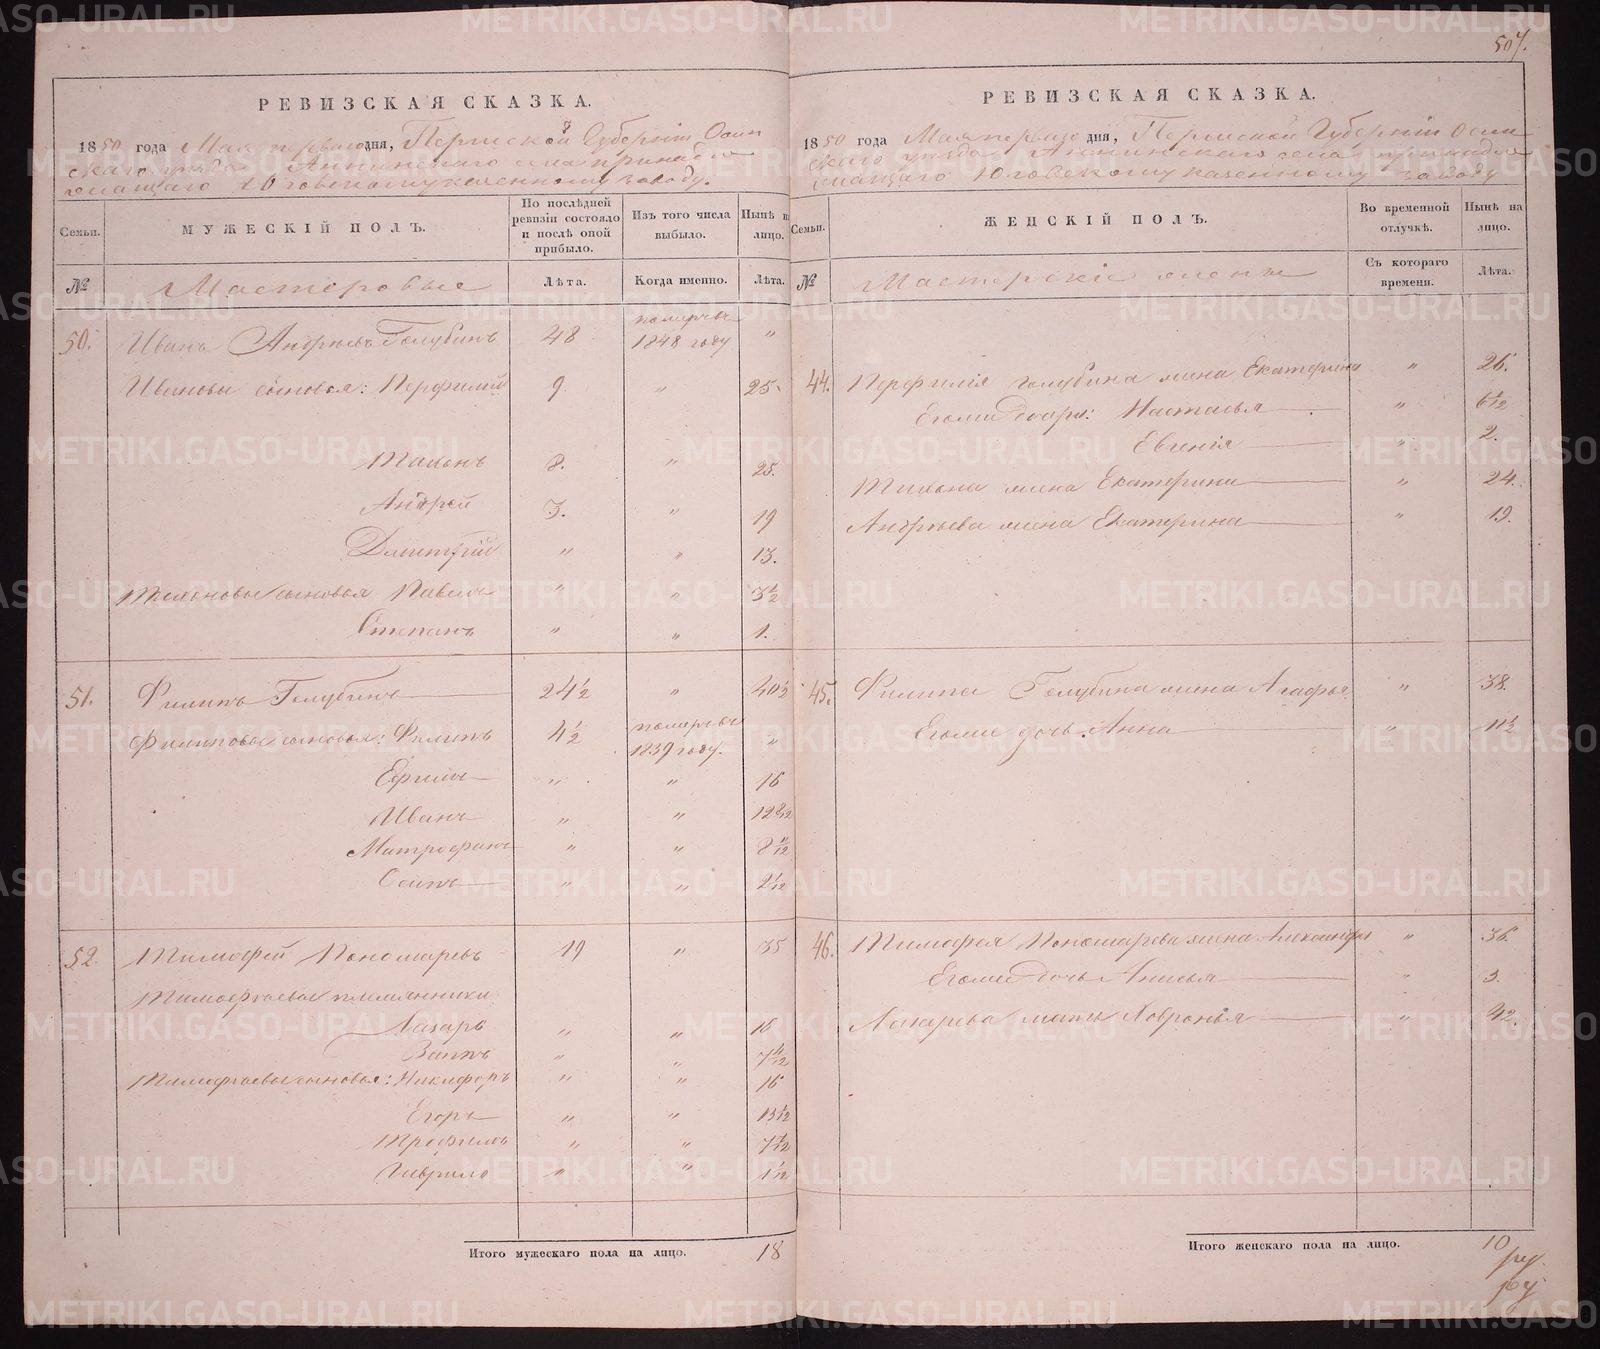 504.
РЕВИЗСКАЯ СКАЗКА.
1850 года Мая перваго дня, Пермской Губерніи Осин
скаго уезда Аннинскаго села принадле
жащаго Юговскому казенному заводу.
Семьи.
МУЖЕСКІЙ ПОЛЪ.
По послѣдней ревизіи состояло и послѣ оной прибыло.
Изъ того числа выбыло.
Нынѣ на лицо.
№
Мастеровые
Лѣта.
Когда именно.
Лѣта.
50. Иванъ Андреевъ Голубинъ 48 померъ въ 1848 году "
Ивановы сыновья: Перфилий 9. " 25.
Тихонъ 8. " 25.
Андрей 3. " 19
Дмитрий " " 13.
Тихоновы сыновья Павелъ " " 3 1/2
Степанъ " " 1.
51. Филипъ Голубинъ 24 1/2 " 40 1/2
Филиповы сыновья: Филипъ 4 1/2 померъ въ 1839 году. "
Ефимъ " " 16
Иванъ " " 12 8/12
Митрофанъ " " 8 11/12
Осипъ " " 2 1/12
52. Тимофей Пономаревъ 19 " 35
Тимофеевы племянники
Лазарь " " 16
" " 7 4/12
Тимофеевы сыновья: Никифоръ " " 16
Егоръ " " 13 1/12
Трофимъ " " 7 1/12
Гаврило " " 1 1/12
Итого мужескаго пола на лицо. 18
РЕВИЗСКАЯ СКАЗКА.
1850 года Мая перваго дня, Пермской Губерніи Осин
скаго уезда Аннинскаго села принадле
жащаго Юговскому казенному заводу
Семьи.
ЖЕНСКІЙ ПОЛЪ.
Во временной отлучкѣ.
Нынѣ на лицо.
№
Мастерскіе жены
Съ котораго времени.
Лѣта.
44. Перфилія Голубина жена Екатерина " 26.
Егоже дочери: Настасья " 6 1/2
Евгенія " 2.
Тихона жена Екатерина " 24.
Андреева жена Екатерина " 19.
45. Филипа Голубина жена Агафья " 38.
Егоже дочь Анна " 11 1/2
46. Тимофея Пономарева жена Александра " 36
Егоже дочь Анисья " 3.
Лазарева мать Ховронья " 42.
Итого женскаго пола на лицо. 10
METRIKI.GASO-URAL.RU